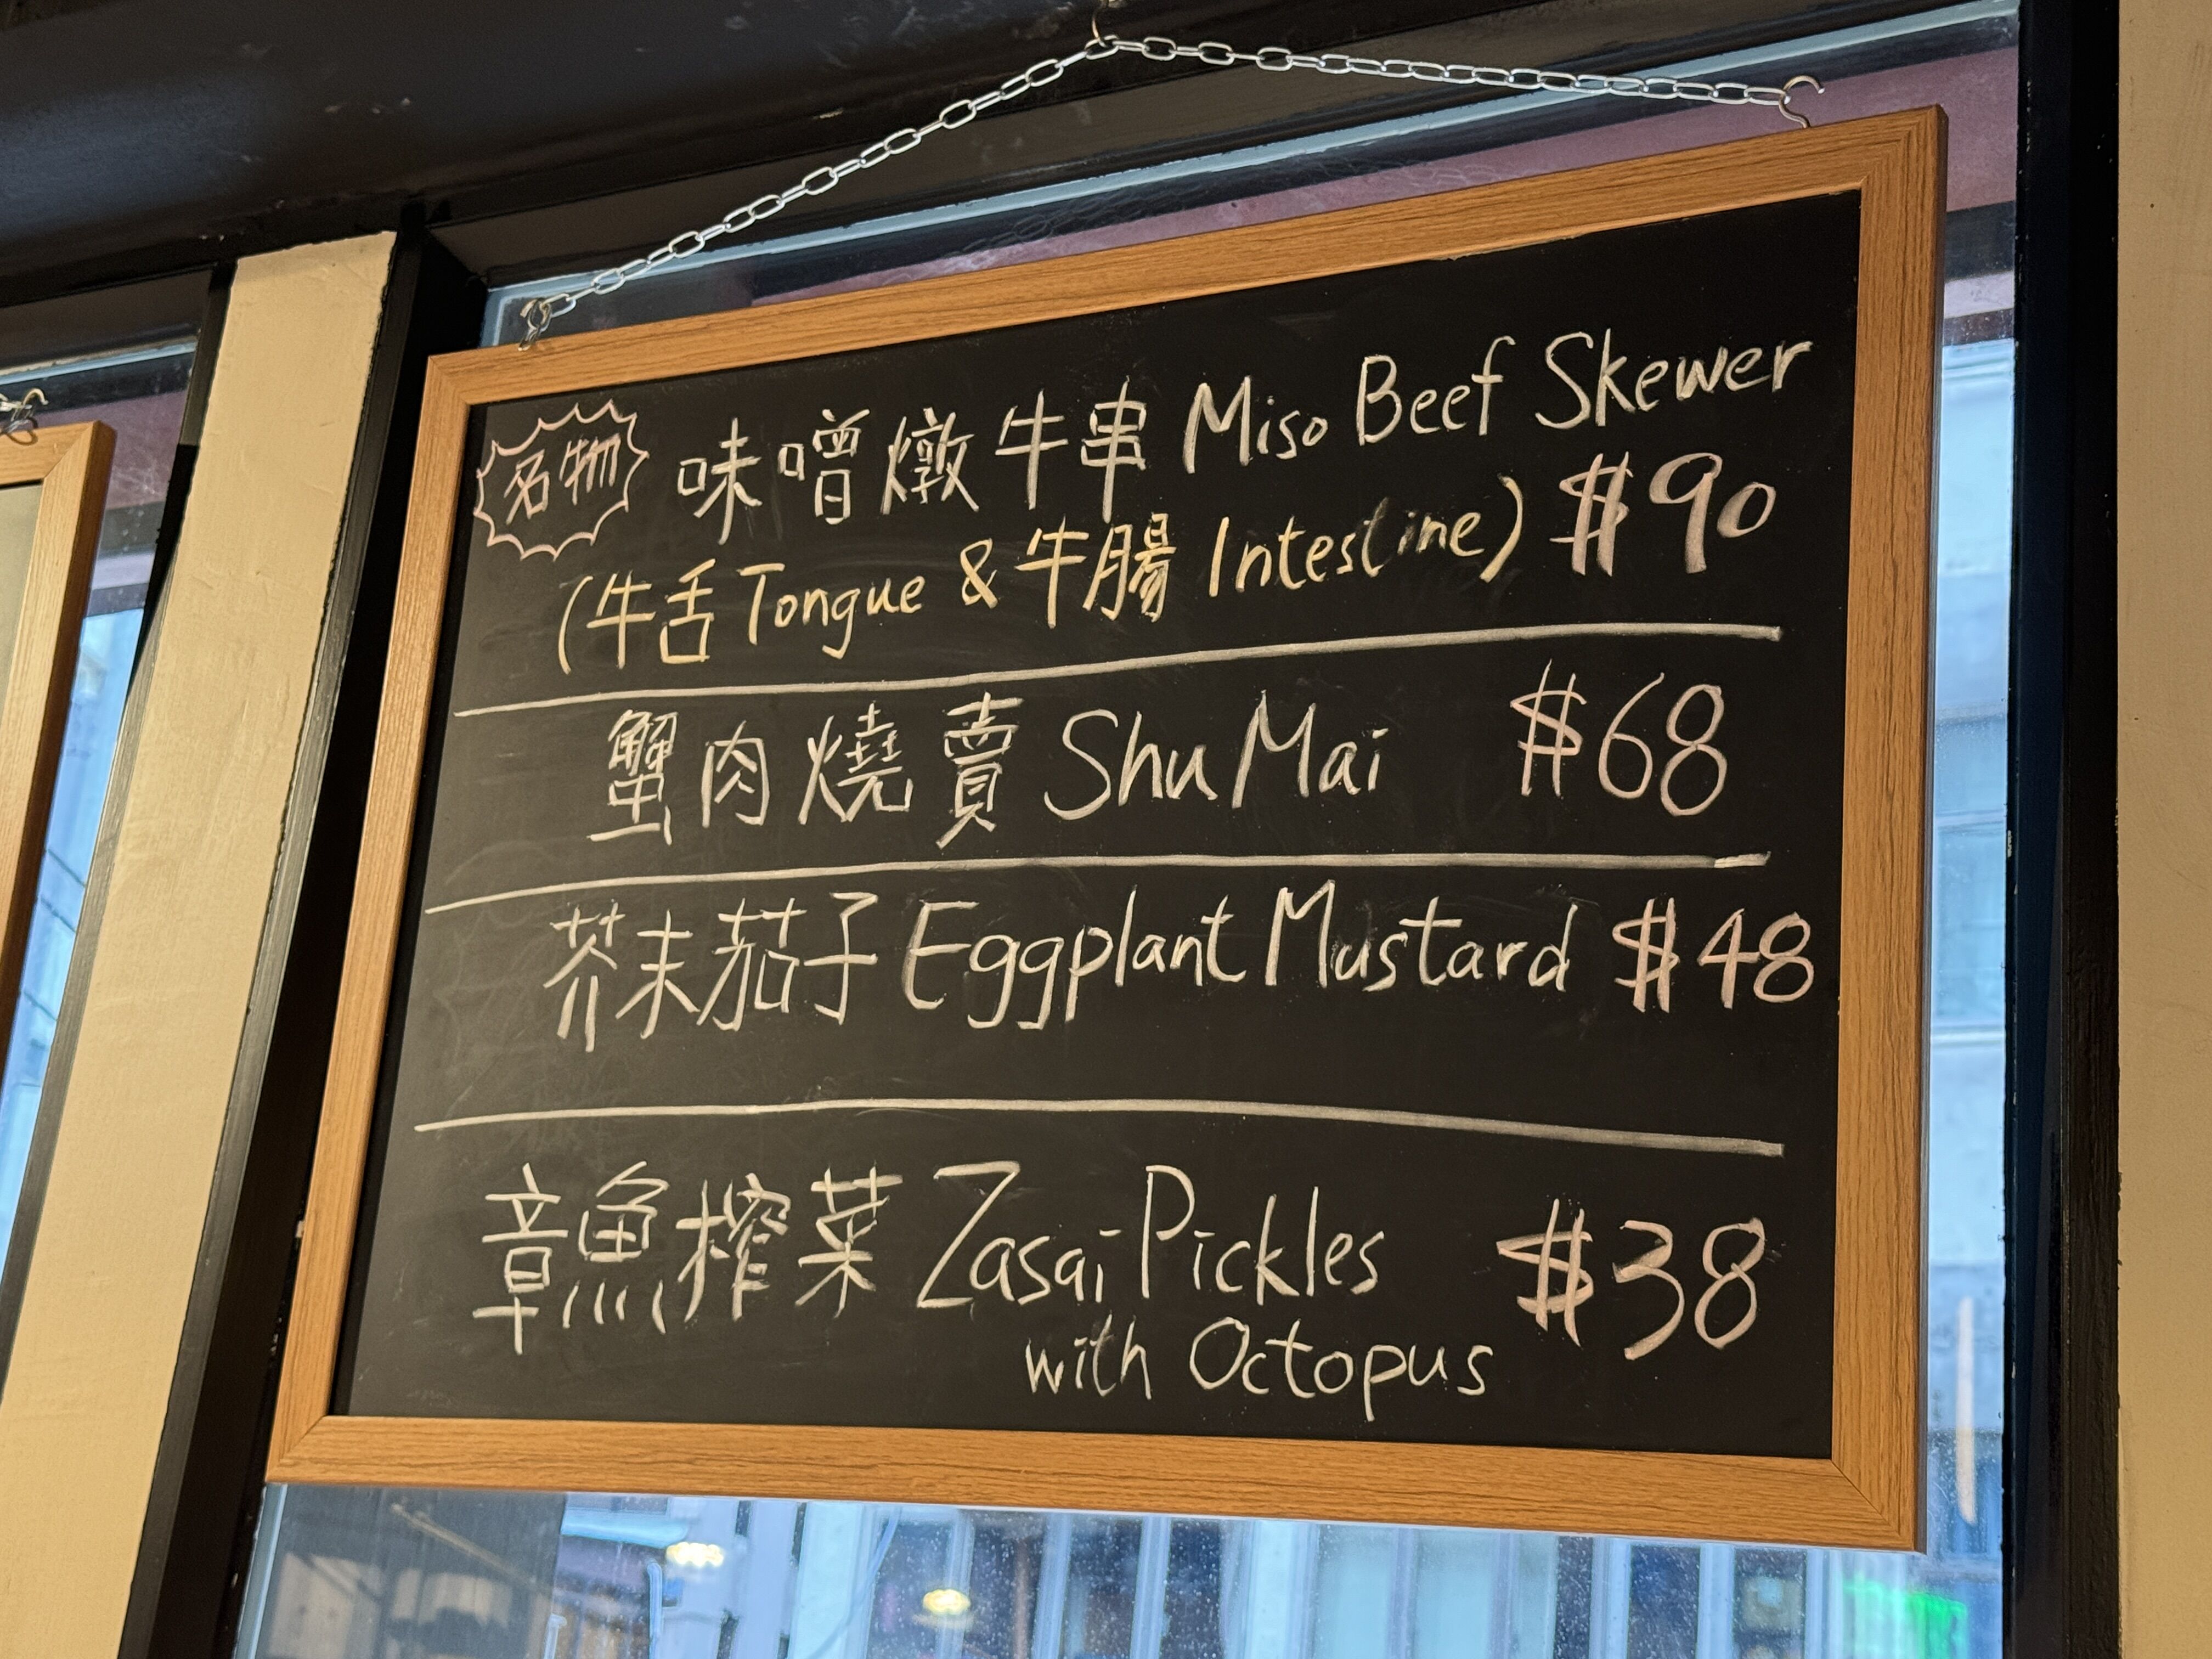 名物 味噌燉牛串 Miso Beef Skewer
(牛舌 Tongue & 牛腸 Intestine) $90
蟹肉燒賣 Shu Mai $68
芥末茄子 Eggplant Mustard $48
章魚榨菜 Zasai Pickles $38
with Octopus